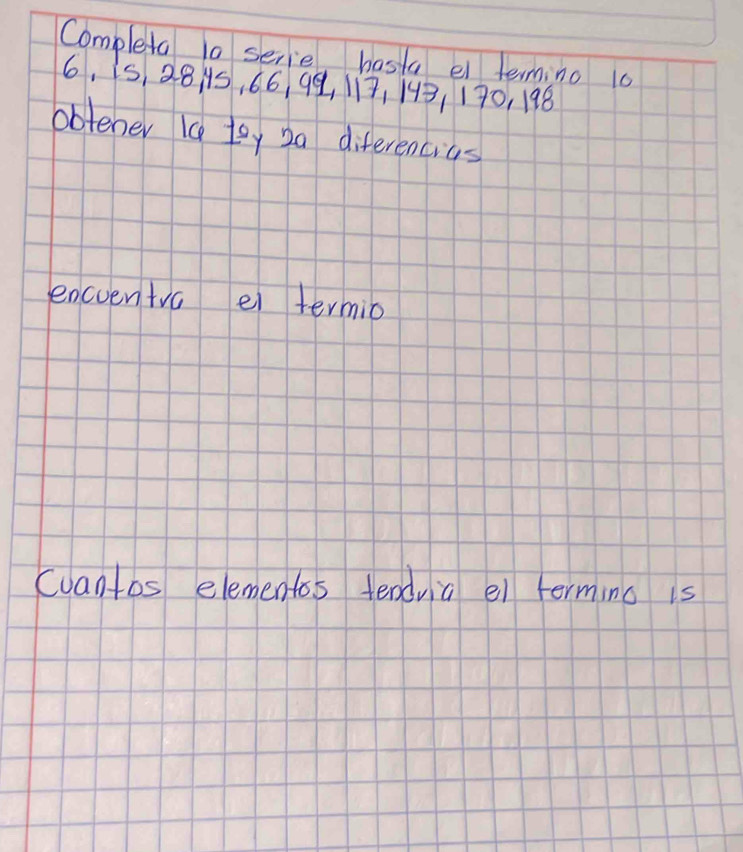 Completa la serie hasta el termino 10
6, 15, 28, 45, 66, 91, 117, 143, 170, 198
obtener la 1a y 2a diferencias
encuentra el termio
Cuantos elementos tendria el termino 15